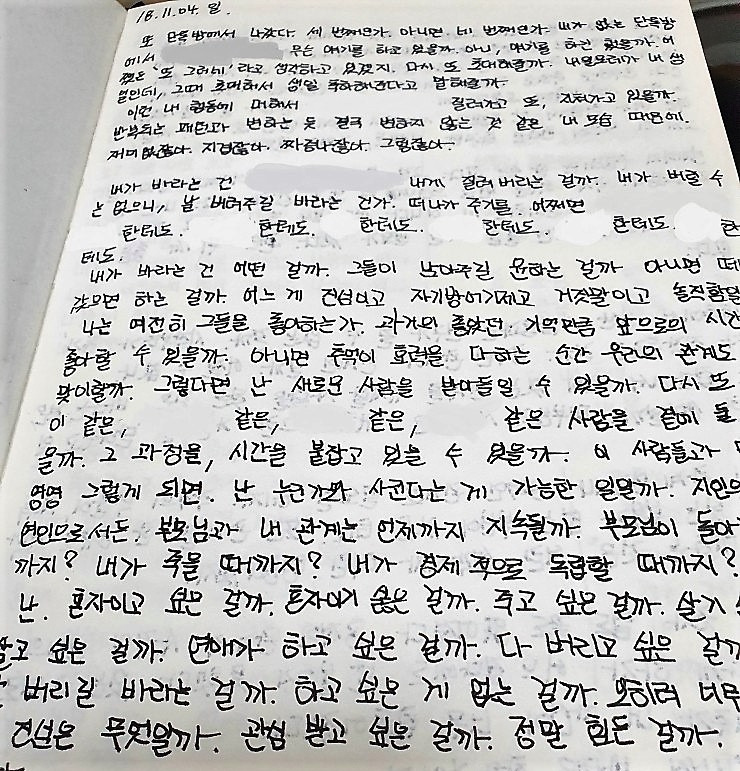 18.11.04. 일.
또 단톡방에서 나갔다. 세 번째던가. 아니면 네 번째던가. 내가 없는 단톡방
에서 무슨 얘기를 하고 있을까. 아니, 얘기를 하긴 했을까. 어
쩌면 '또 그러네' 라고 생각하고 있겠지. 다시 또 초대할까. 내일모레가 내 생
일인데, 그때 초대해서 생일 축하한다고 말해줄까.
이런 내 행동에 대해서 질려가고 또, 지쳐가고 있을까.
반복되는 패턴과 변하는 듯 결국 변하지 않는 것 같은 내 모습 때문에.
재미없잖아. 지겹잖아. 짜증나잖아. 그렇잖아.
내가 바라는 건 내게 질려버리는 걸까. 내가 버릴 수
는 없으니, 날 버려주길 바라는 건가. 떠나가 주기를. 어쩌면
한테도. 한테도. 한테도. 한테도. 한테도. 한
테도.
내가 바라는 건 어떤 걸까. 그들이 남아주길 원하는 걸까 아니면
갔으면 하는 걸까. 어느 게 진심이고 자기방어기제고 거짓말이고 솔직함일
나는 여전히 그들을 좋아하는가. 과거의 좋았던 기억만큼 앞으로의 시간
좋아할 수 있을까. 아니면 추억이 효력을 다하는 순간 우리의 관계도
맞이할까. 그렇다면 난 새로운 사람을 받아들일 수 있을까. 다시 또
이 같은, 같은, 같은, 같은 사람을 곁에 둘
을까. 그 과정을, 시간을 붙잡고 있을 수 있을까. 이 사람들과
영영 그렇게 되면. 난 누군가와 사귄다는 게 가능한 일일까. 지인으
연인으로서든. 부모님과 내 관계는 언제까지 지속될까. 부모님이 돌아
까지? 내가 죽을 때까지? 내가 경제적으로 독립할 때까지?
난. 혼자이고 싶은 걸까. 혼자이기 싫은 걸까. 죽고 싶은 걸까. 살기
고 싶은 걸까. 연애가 하고 싶은 걸까. 다 버리고 싶은 걸까
버리길 바라는 걸까. 하고 싶은 게 없는 걸까. 오히려 너무
진심은 무엇일까. 관심 받고 싶은 걸까. 정말 힘든 걸까.